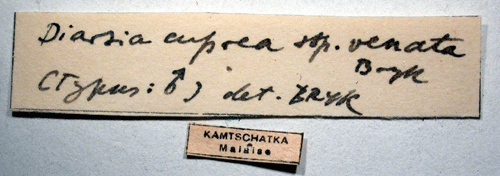 Diarsia cuprea ssp. venata
Bryk
(Typus: ♂) det. BRYK
KAMTSCHATKA
Malaise